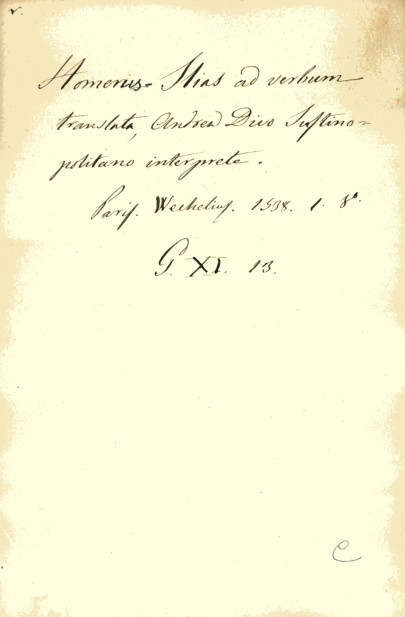 v.
Homerus. Ilias ad verbum
translata, Andrea Divo Justino=
politano interprete.
Paris. Wechelius. 1538. 1. 8°.
G. XI. 13.
C